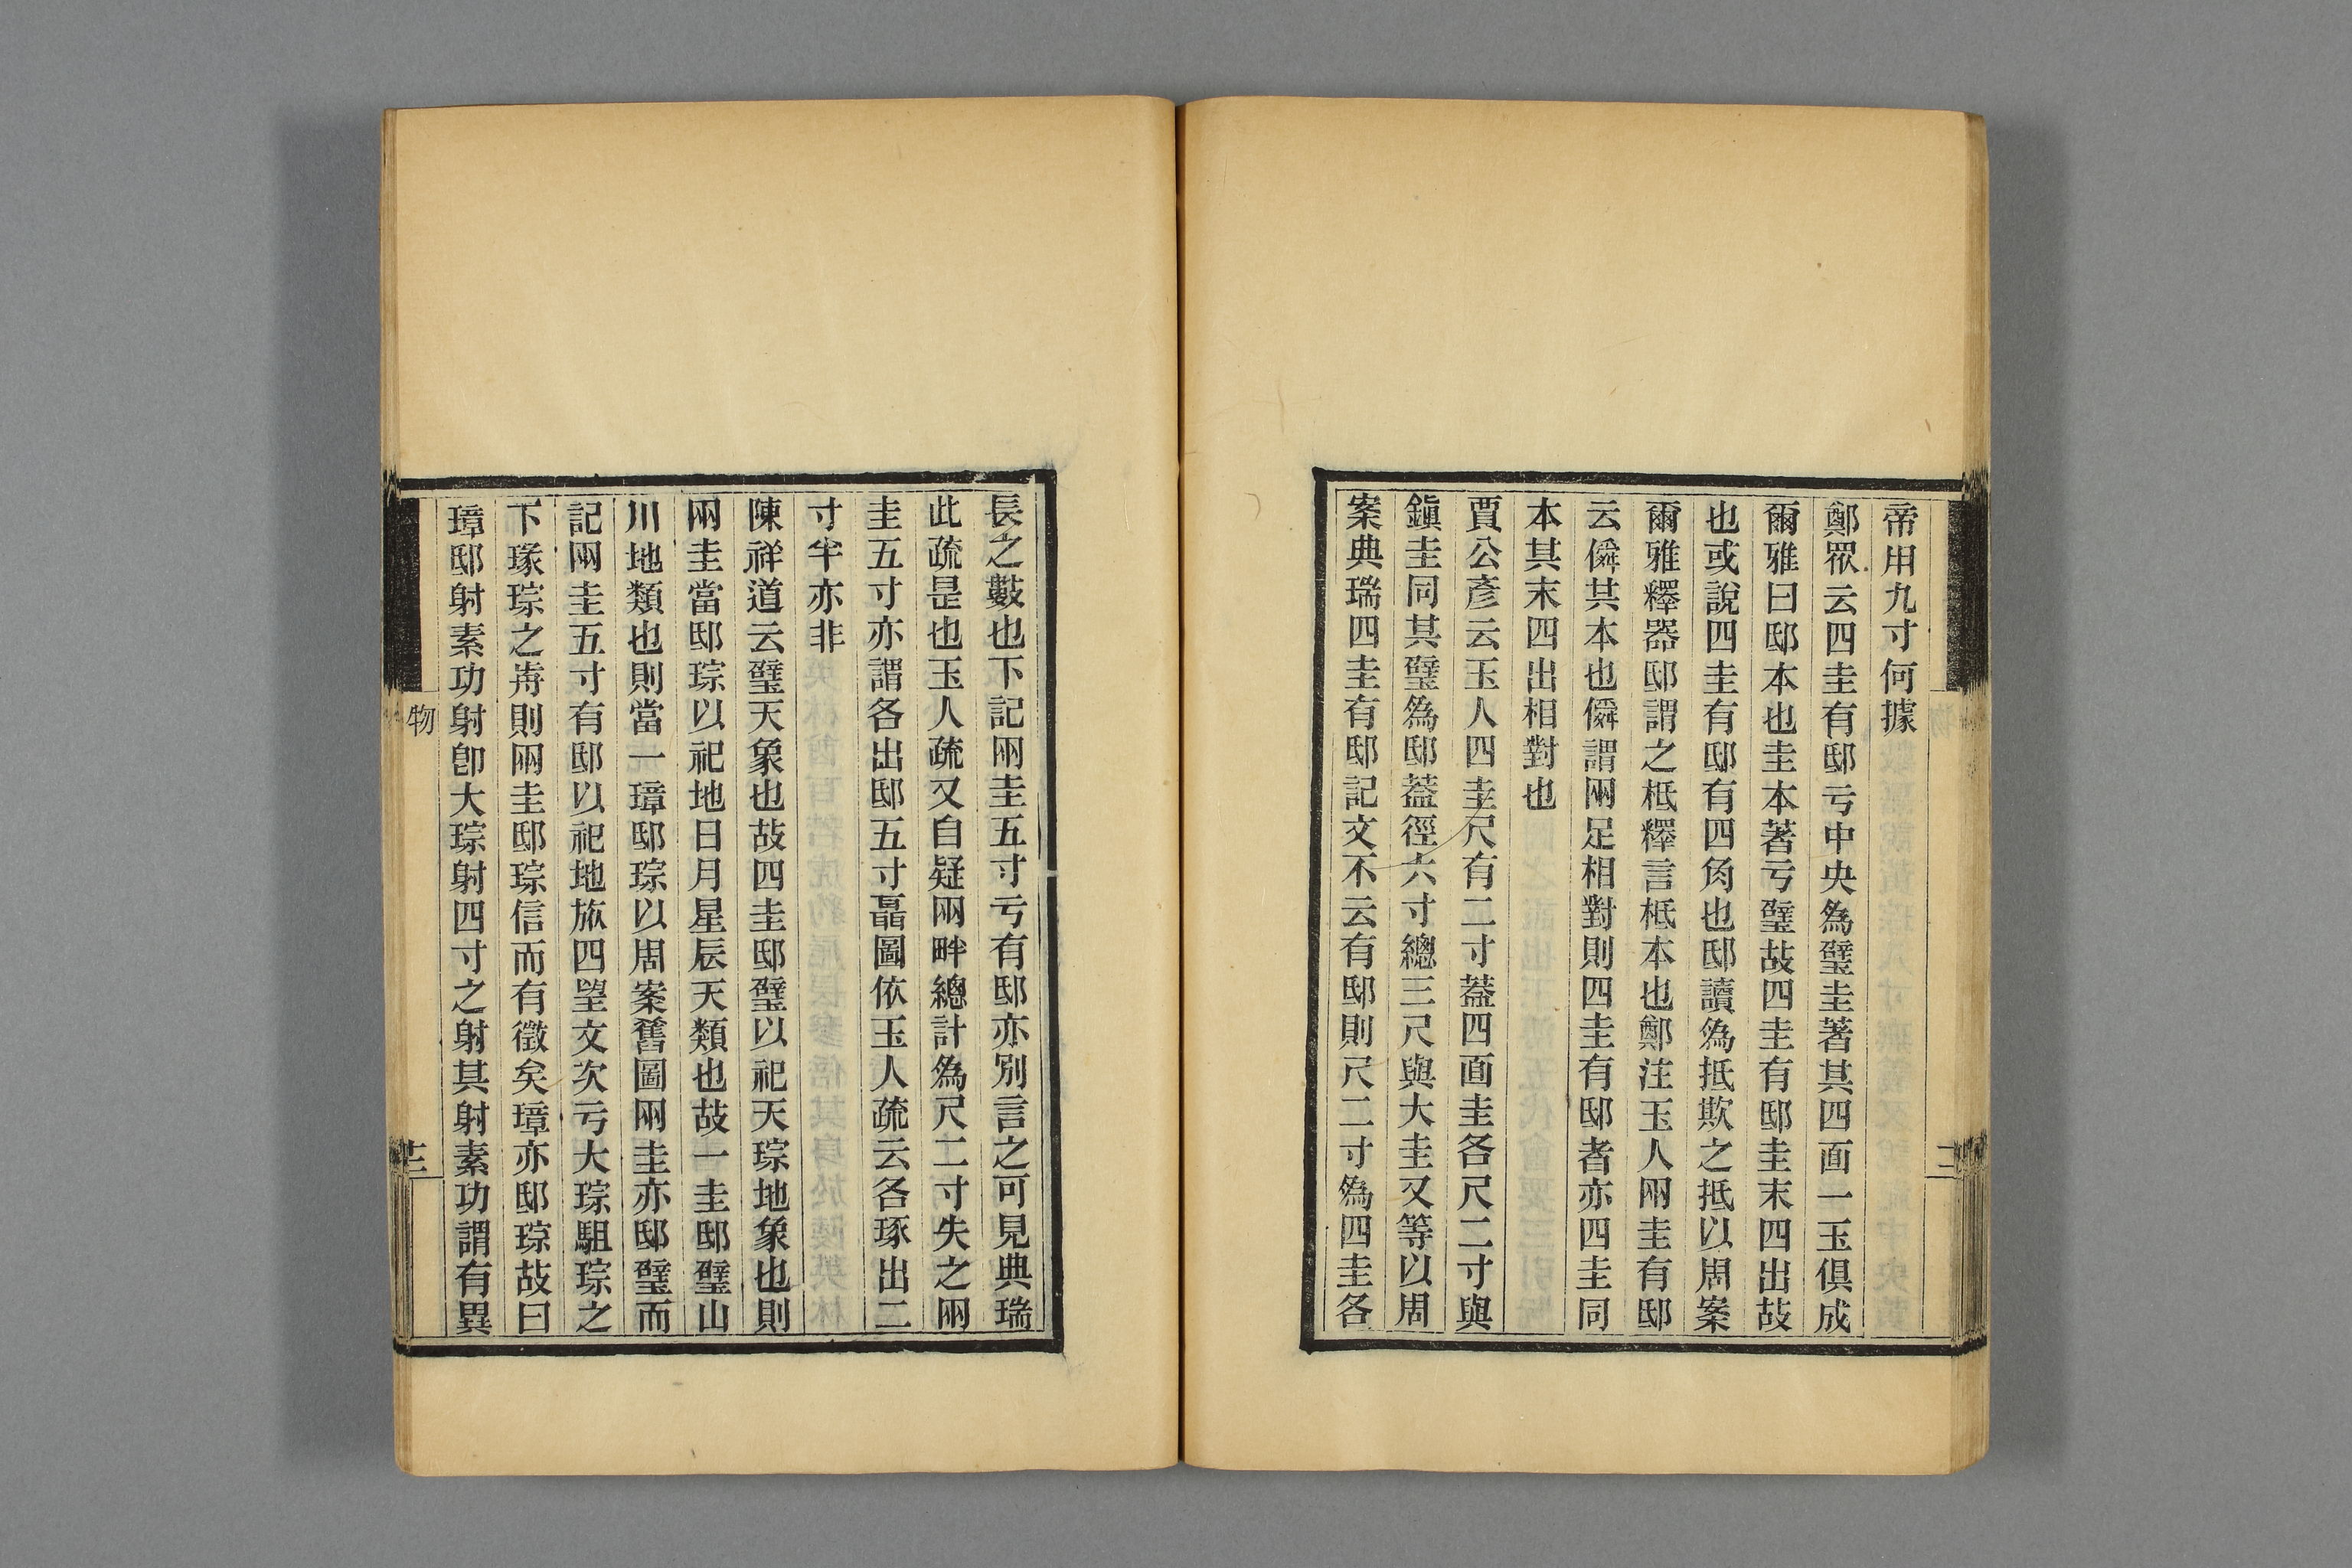 帝用九寸何據
鄭眾云四圭有邸亏中央爲璧圭著其四面一玉俱成
爾雅曰邸本也圭本著亏璧故四圭有邸圭末四出故
也或說四圭有邸有四角也邸讀爲抵欺之抵以周案
爾雅釋器邸謂之柢釋言柢本也鄭注玉人兩圭有邸
云僢其本也僢謂兩足相對則四圭有邸者亦四圭同
本其末四出相對也
賈公彥云玉人四圭尺有二寸蓋四面圭各尺二寸與
鎭圭同其璧爲邸蓋徑六寸總三尺與大圭又等以周
案典瑞四圭有邸記文不云有邸則尺二寸爲四圭各
長之數也下記兩圭五寸亏有邸亦別言之可見典瑞
此疏是也玉人疏又自疑兩畔總計爲尺二寸失之兩
圭五寸亦謂各出邸五寸聶圖依玉人疏云各琢出二
寸半亦非
陳祥道云璧天象也故四圭邸璧以祀天琮地象也則
兩圭當邸琮以祀地日月星辰天類也故一圭邸璧山
川地類也則當一璋邸琮以周案舊圖兩圭亦邸璧而
記兩圭五寸有邸以祀地旅四望文次亏大琮駔琮之
下瑑琮之歬則兩圭邸琮信而有徵矣璋亦邸琮故曰
璋邸射素功射卽大琮射四寸之射其射素功謂有異
物